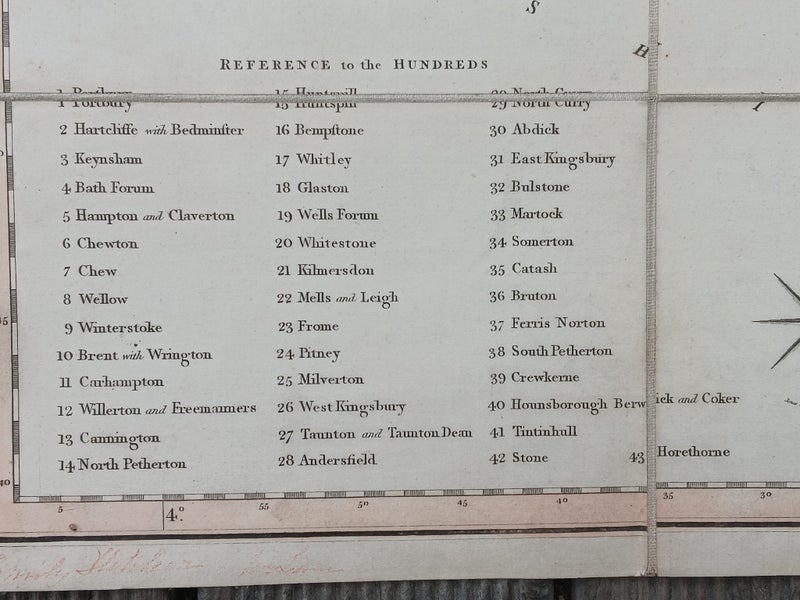 S
H
REFERENCE to the HUNDREDS
1 Portbury
2 Hartcliffe with Bedminſter
3 Keynsham
4 Bath Forum
5 Hampton and Claverton
6 Chewton
7 Chew
8 Wellow
9 Winterstoke
10 Brent with Wrington
11 Carhampton
12 Willerton and Freemanners
13 Cannington
14 North Petherton
15 Huntspill
16 Bempſtone
17 Whitley
18 Glaston
19 Wells Forum
20 Whitestone
21 Kilmersdon
22 Mells and Leigh
23 Frome
24 Pitney
25 Milverton
26 West Kingsbury
27 Taunton and Taunton Dean
28 Andersfield
29 North Curry
30 Abdick
31 East Kingsbury
32 Bulstone
33 Martock
34 Somerton
35 Catash
36 Bruton
37 Ferris Norton
38 South Petherton
39 Crewkerne
40 Hounsborough Berwick and Coker
41 Tintinhull
42 Stone
43 Horethorne
45
40
5 4° 55 50 45 40 35 30